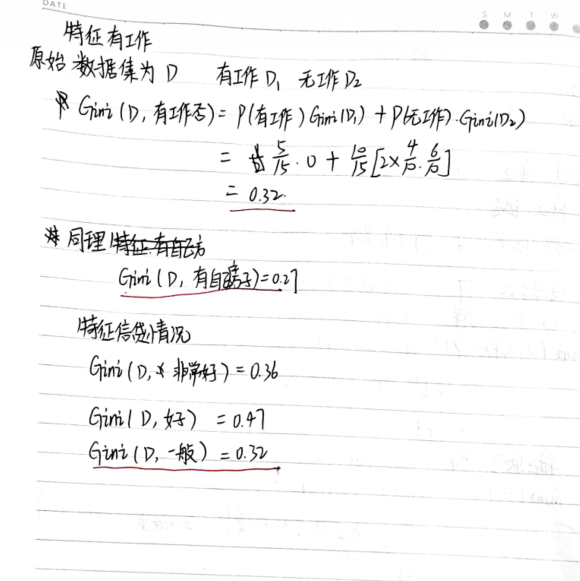 DATE
S M T W
特征有工作
原始数据集为 D 有工作D₁ 无工作D₂
Gini(D,有工作否)= P(有工作)Gini(D₁)+P(无工作)·Gini(D₂)
= 5/15·0+10/15[2×4/10·6/10]
= 0.32.
同理 特征:有自己房
Gini(D,有自己房子)=0.27
特征信贷情况
Gini(D,非常好)=0.36
Gini(D,好) =0.47
Gini(D,一般)=0.32